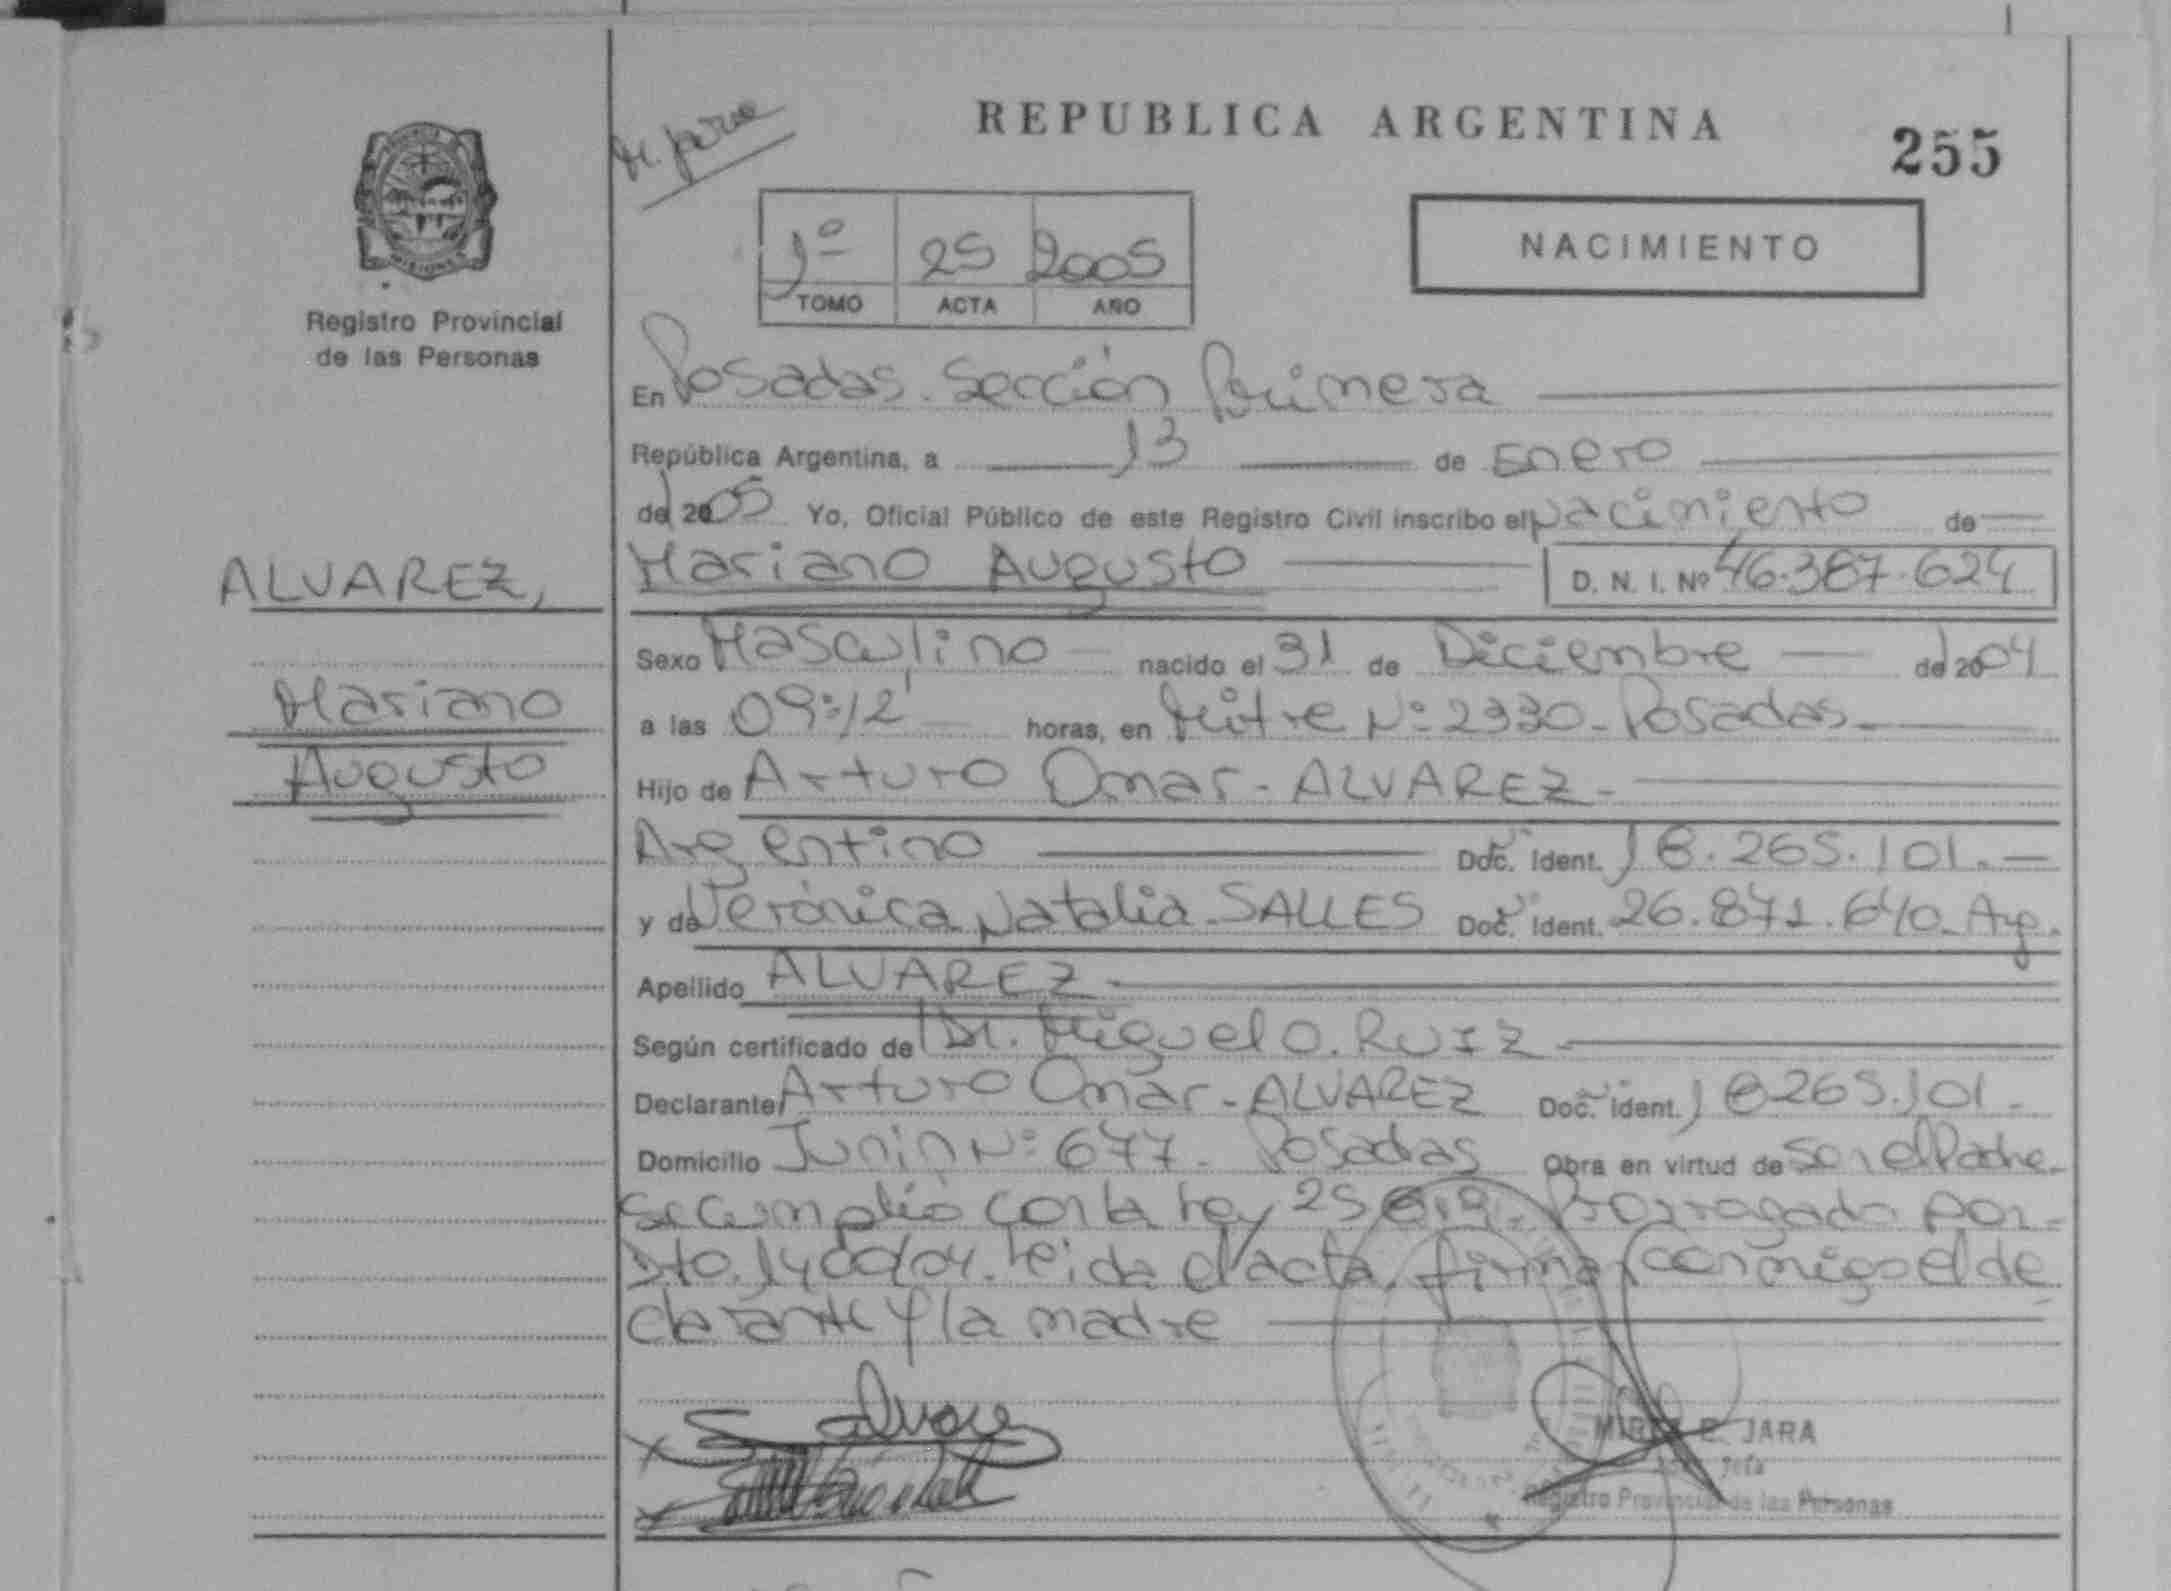 REPUBLICA ARGENTINA
255
NACIMIENTO
1º 25 2005
TOMO ACTA AÑO
PROVINCIA
MISIONES
Registro Provincial
de las Personas
En Posadas. Sección Primera
República Argentina, a 13 de Enero
del 2005 Yo, Oficial Público de este Registro Civil inscribo el Nacimiento de
ALVAREZ,
Mariano Augusto D. N. I. Nº 46.387.624
Sexo Masculino nacido el 31 de Diciembre del 2004
Mariano
a las 09:12' horas, en Mitre Nº 2330 - Posadas
Augusto
Hijo de Arturo Omar - ALVAREZ -
Argentino Doc. Ident. 18.265.101.
y de Verónica Natalia - SALLES Doc. Ident. 26.871.640 - Arg.
Apellido ALVAREZ
Según certificado de Dr. Miguel O. RUIZ
Declarante Arturo Omar - ALVAREZ Doc. Ident. 18265.101 -
Domicilio Junín Nº 677 - Posadas Obra en virtud de ser el Padre -
Se cumplió con la Ley 25 Prorrogado por
Dto. 1400/04. Leída el acta, firma conmigo el de
clarante y la madre
E. JARA
Jefa
Registro Provincial de las Personas